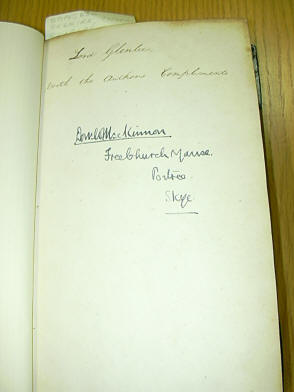 Lord Glenlee
With the Authors Compliments
Donald MacKinnon
Free Church Manse.
Portree
Skye